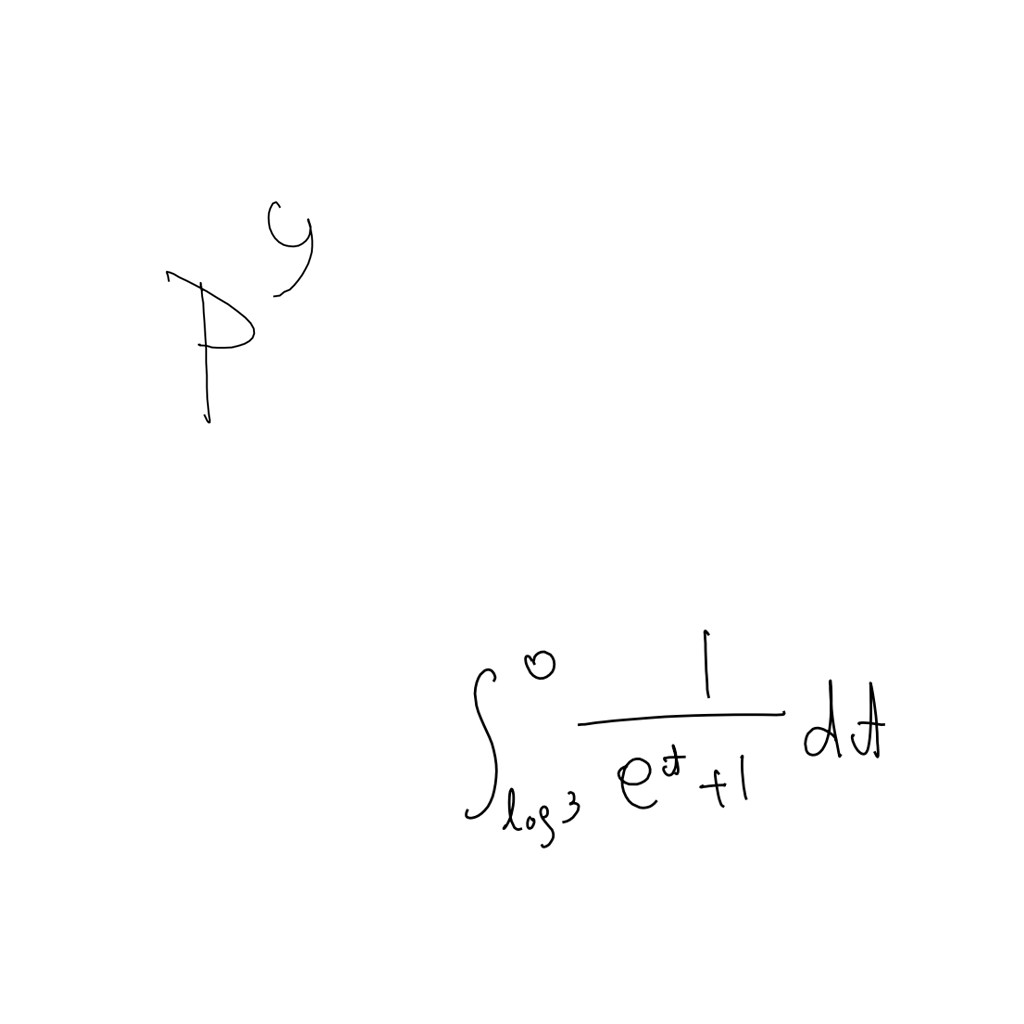 p^y
\int_{\log 3}^{0} \frac{1}{e^t+1} dt